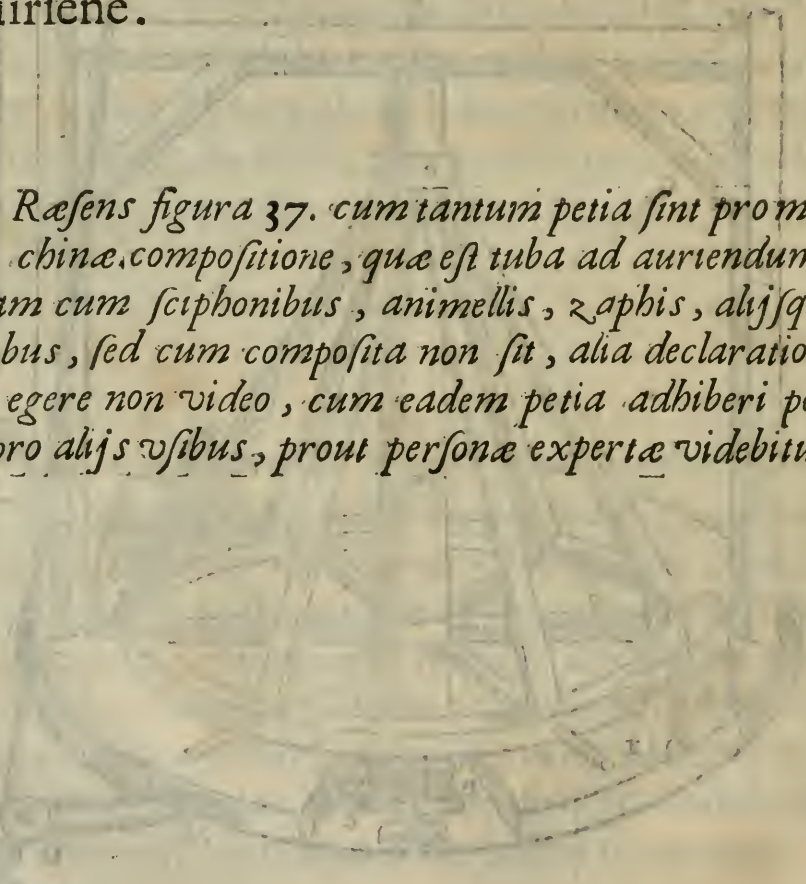 uirsene.
Ræſens figura 37. cum tantum petia ſint pro m
chinæ compoſitione, quæ eſt tuba ad auriendum
am cum ſciphonibus, animellis, zaphis, alijſq
bus, ſed cum compoſita non ſit, alia declaratio
egere non video, cum eadem petia adhiberi po
pro alijs vſibus, prout perſonæ expertæ videbitu